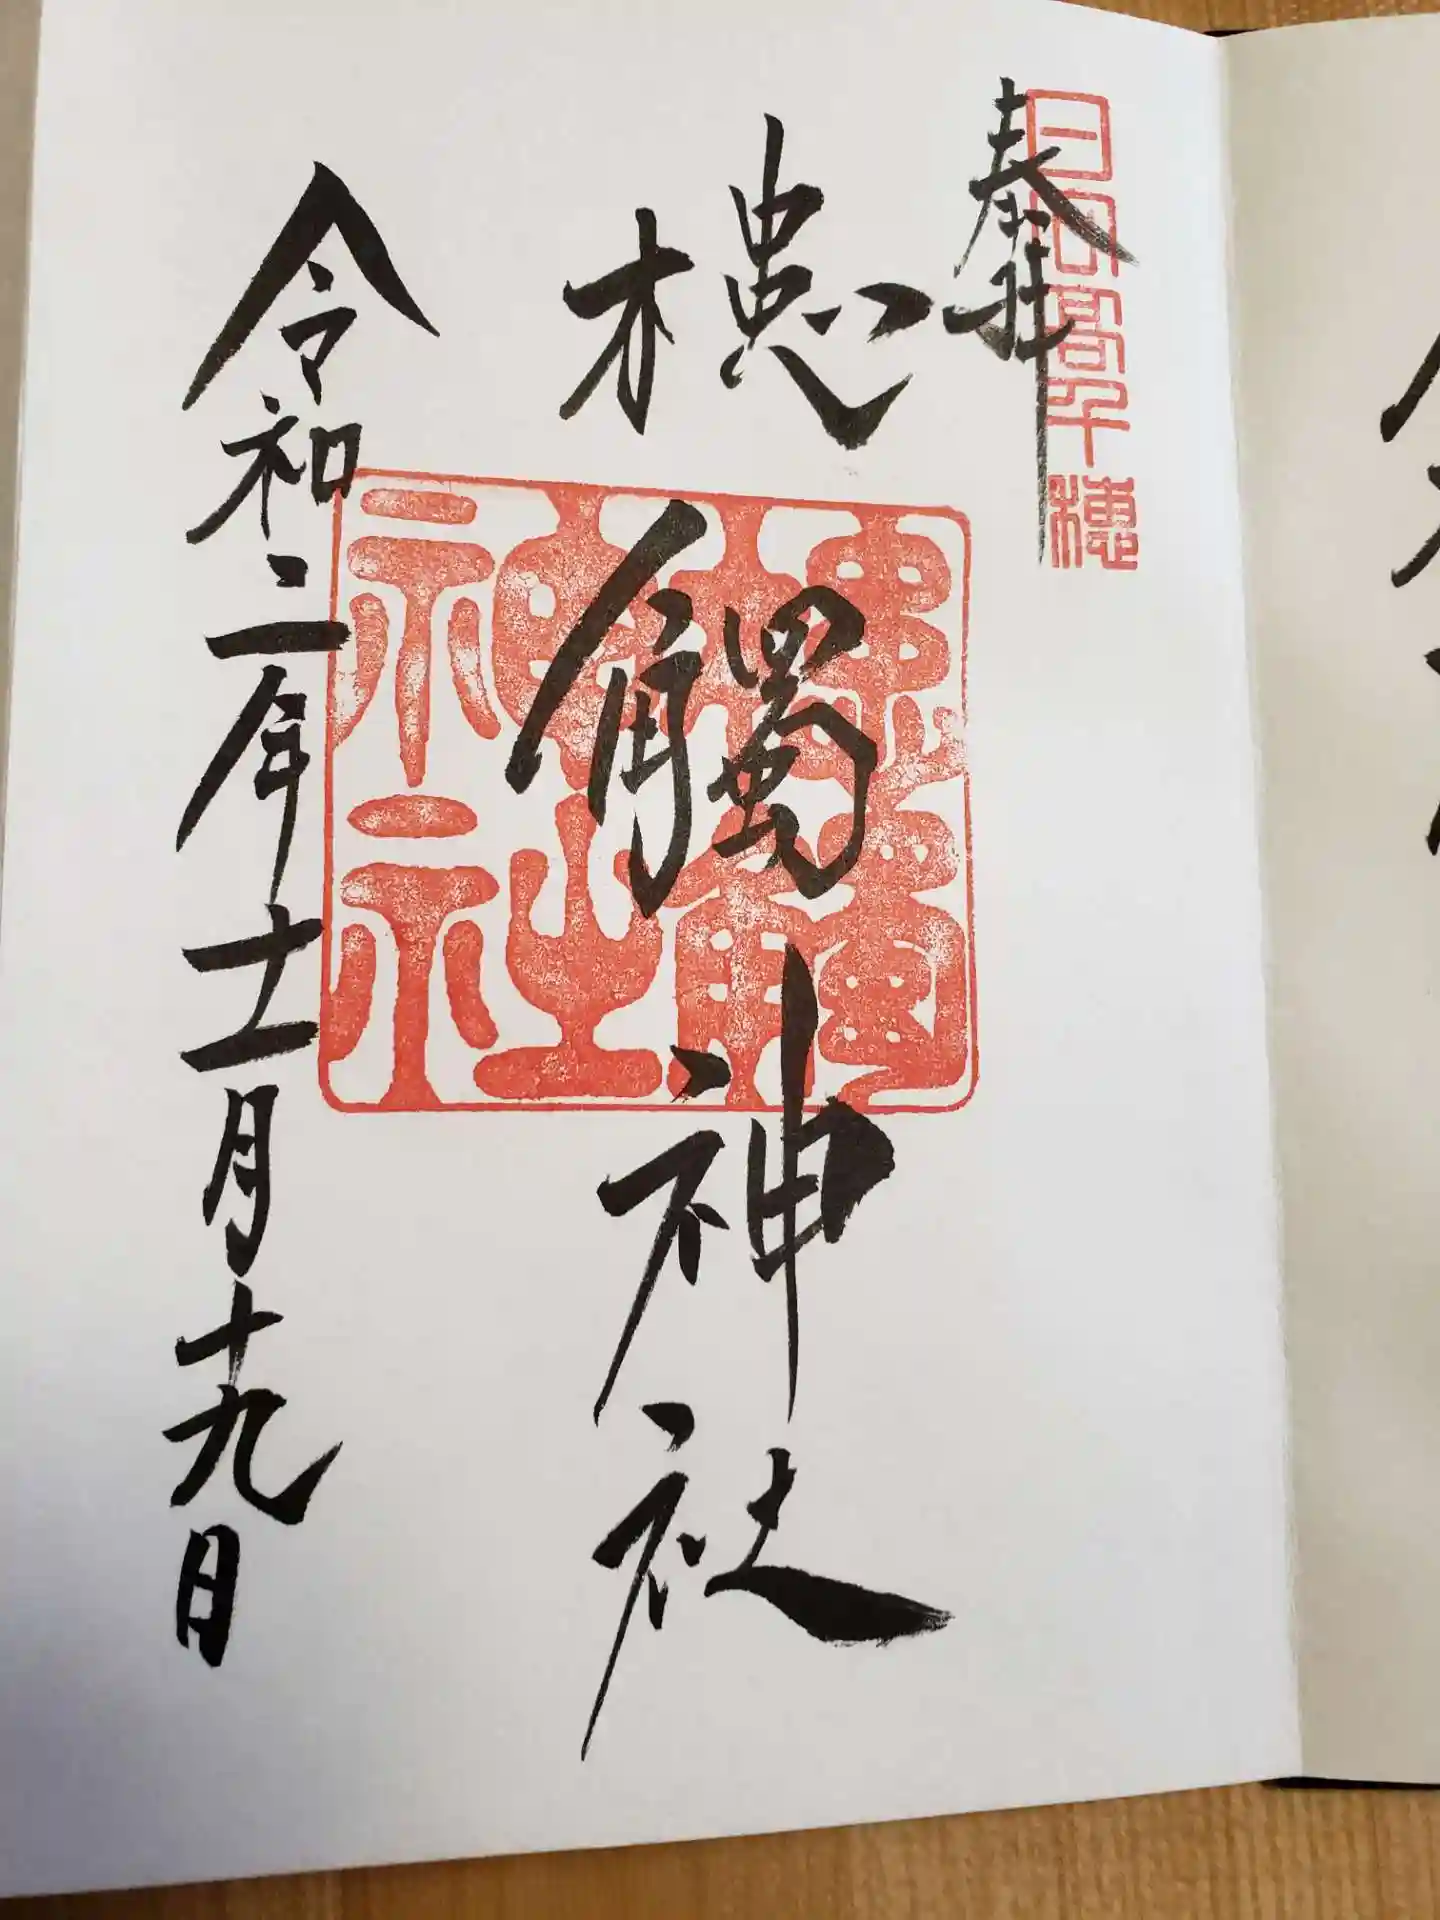 日向高千穂
奉拝
槵觸神社
槵觸神社
令和二年十一月十九日